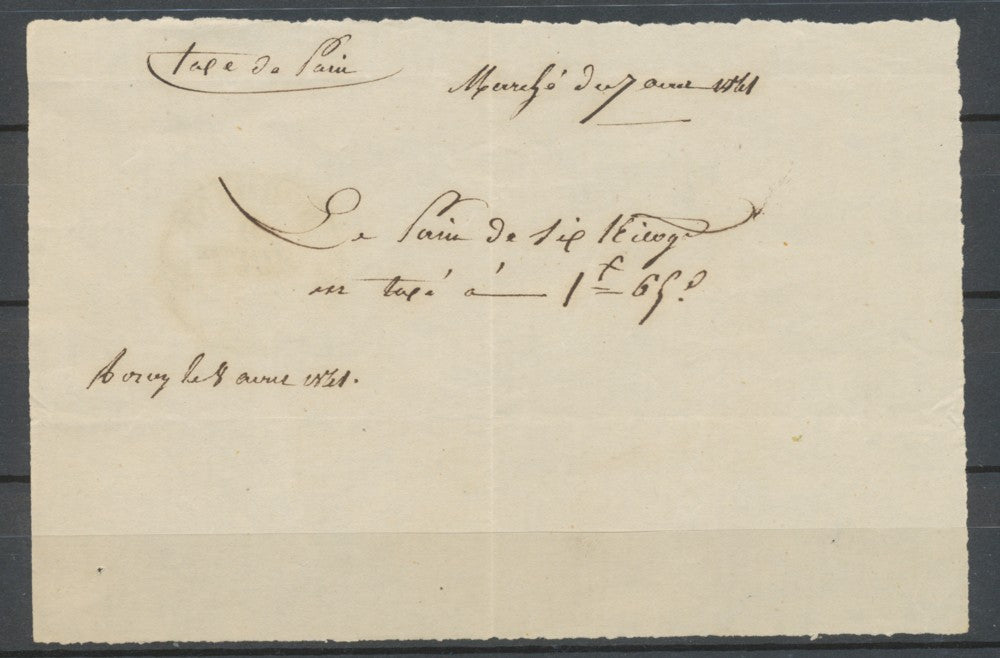 taxe de Pain
Marché du 7 avril 1841
Le Pain de six Kilogr
est taxé à 1f 65c
le 8 avril 1841.